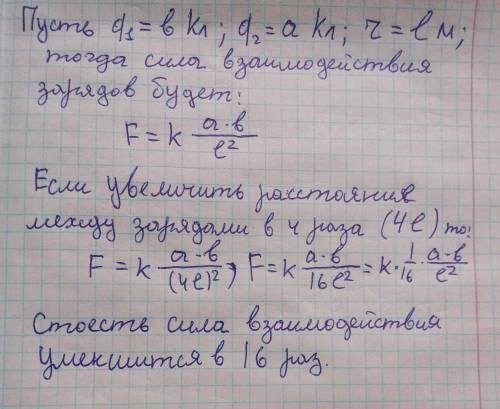 Пусть q₁ = в Кл; q₂ = a Кл; r = l м;
тогда сила взаимодействия
зарядов будет:
F = k a·в / l²
Если увеличить расстояние
между зарядами в 4 раза (4l) то:
F = k a·в / (4l)² ; F = k a·в / 16l² = k · 1/16 · a·в / l²
Стоесть сила взаимодействия
уменьшится в 16 раз.